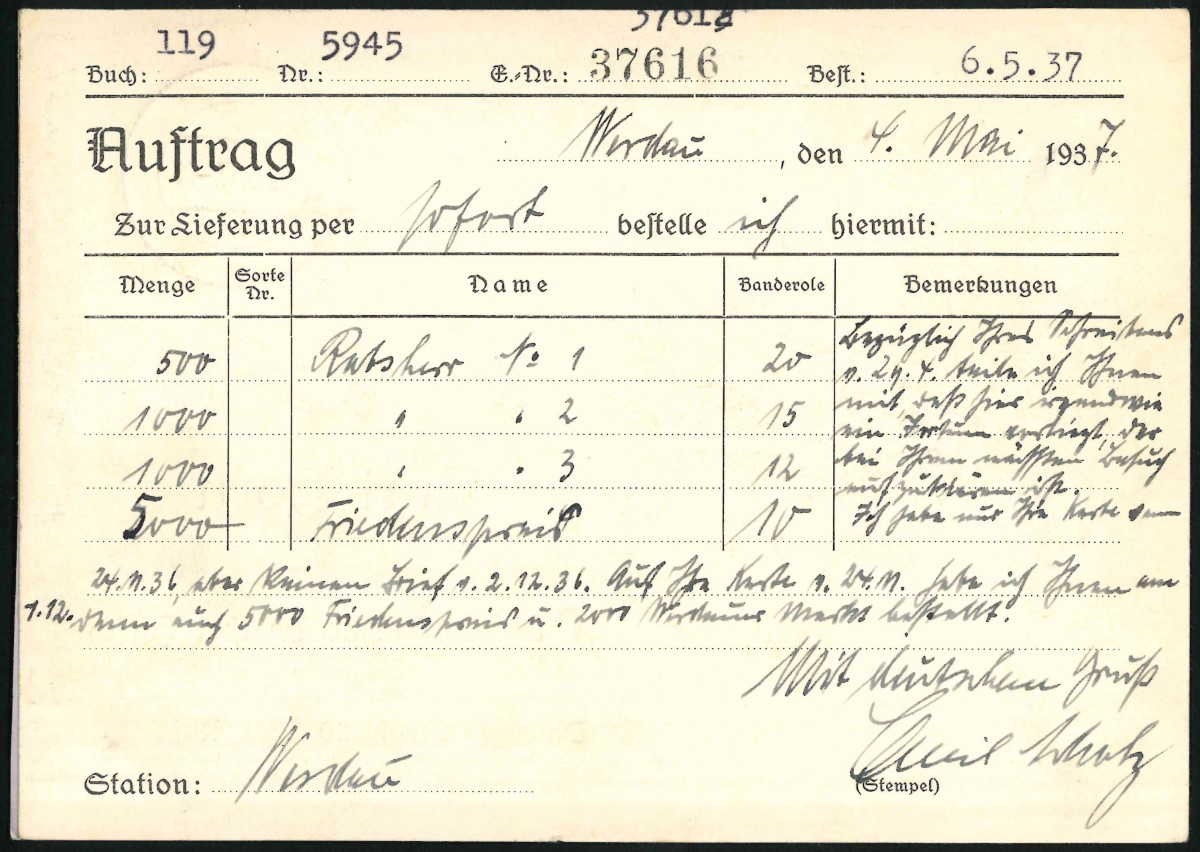 37618
Buch: 119 Nr.: 5945 E.-Nr.: 37616 Best.: 6.5.37
Auftrag Werdau, den 4. Mai 1937.
Zur Lieferung per sofort bestelle ich hiermit:
Menge Sorte Nr. Name Banderole Bemerkungen
500 Ratsherr No 1 20
1000 " " 2 15
1000 " " 3 12
5000 Friedenspreis 10
Bezüglich Ihres Schreibens
v. 29. 4. teile ich Ihnen
mit, daß hier irgendwie
ein Irrtum vorliegt, der
bei Ihrem nächsten Besuch
aufzuklären ist.
Ich habe nur Ihre Karte vom
24.11.36, aber keinen Brief v. 2.12.36. Auf Ihre Karte v. 24.11. habe ich Ihnen am
1.12. denn auch 5000 Friedenspreis u. 2000 Werdauer Markt bestellt.
Mit deutschem Gruß
Emil Scholz
Station: Werdau (Stempel)